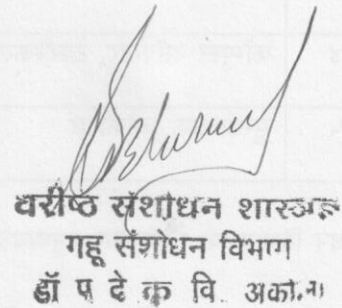 वरीष्ठ संशोधन शास्त्रज्ञ
गहू संशोधन विभाग
डॉ प दे कृ वि अकोला